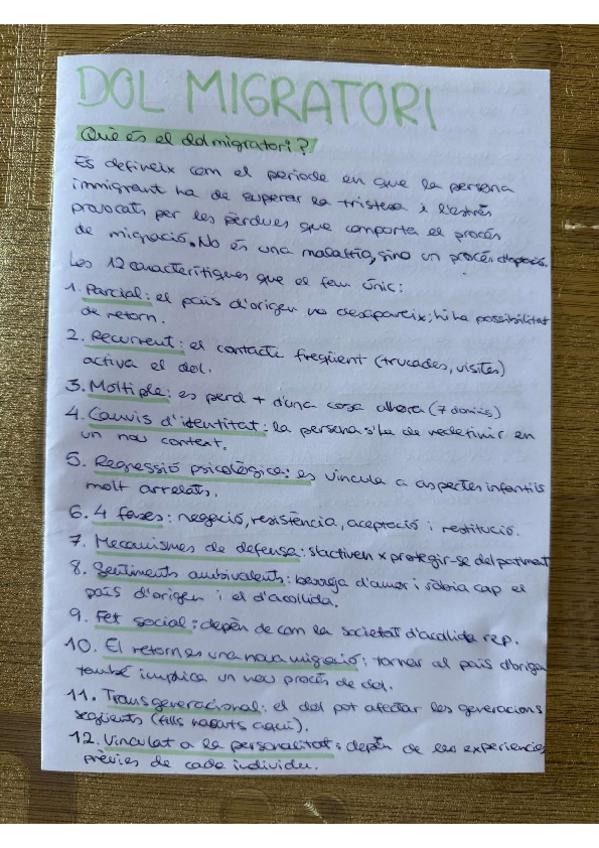 DOL MIGRATORI
Què és el dol migratori?
Es defineix com el període en que la persona
immigrant ha de superar la tristesa i l'estrès
provocats per les pèrdues que comporta el procés
de migració. No és una malaltia, sino un procés d'adapció.
Les 12 caracterítiques que el fem únic:
1. Parcial: el país d'origen no desapareix; hi ha possibilitat
de retorn.
2. Recurrent: el contacte freqüent (trucades, visites)
activa el dol.
3. Múltiple: es perd + d'una cosa alhora (7 dominis)
4. Canvis d'identitat: la persona s'ha de redefinir en
un nou context.
5. Regressió psicològica: es vincula a aspectes infantils
molt arrelats.
6. 4 fases: negació, resistència, acceptació i restitució.
7. Mecanismes de defensa: s'activen x protegir-se del patiment
8. Sentiments ambivalents: barreja d'amor i ràbia cap el
país d'origen i el d'acollida.
9. Fet social: depèn de com la societat d'acollida rep.
10. El retorn es una nova migració: tornar al país d'origen
també implica un nou procés de dol.
11. Transgeneracional: el dol pot afectar les generacions
següents (fills nascuts aquí).
12. Vinculat a la personalitat: depèn de les experiencies
prèvies de cada individu.